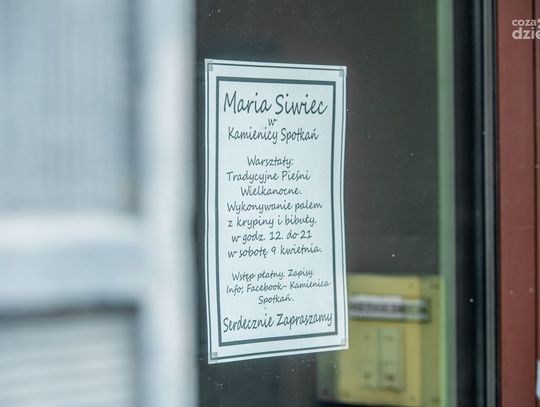 Maria Siwiec
w
Kamienicy Spotkań
Warsztaty:
Tradycyjne Pieśni
Wielkanocne.
Wykonywanie palem
z krypiny i bibuły.
w godz. 12. do 21
w sobotę 9 kwietnia.
Wstęp płatny. Zapisy.
Info; Facebook- Kamienica
Spotkań.
Serdecznie Zapraszamy
coza
dzie